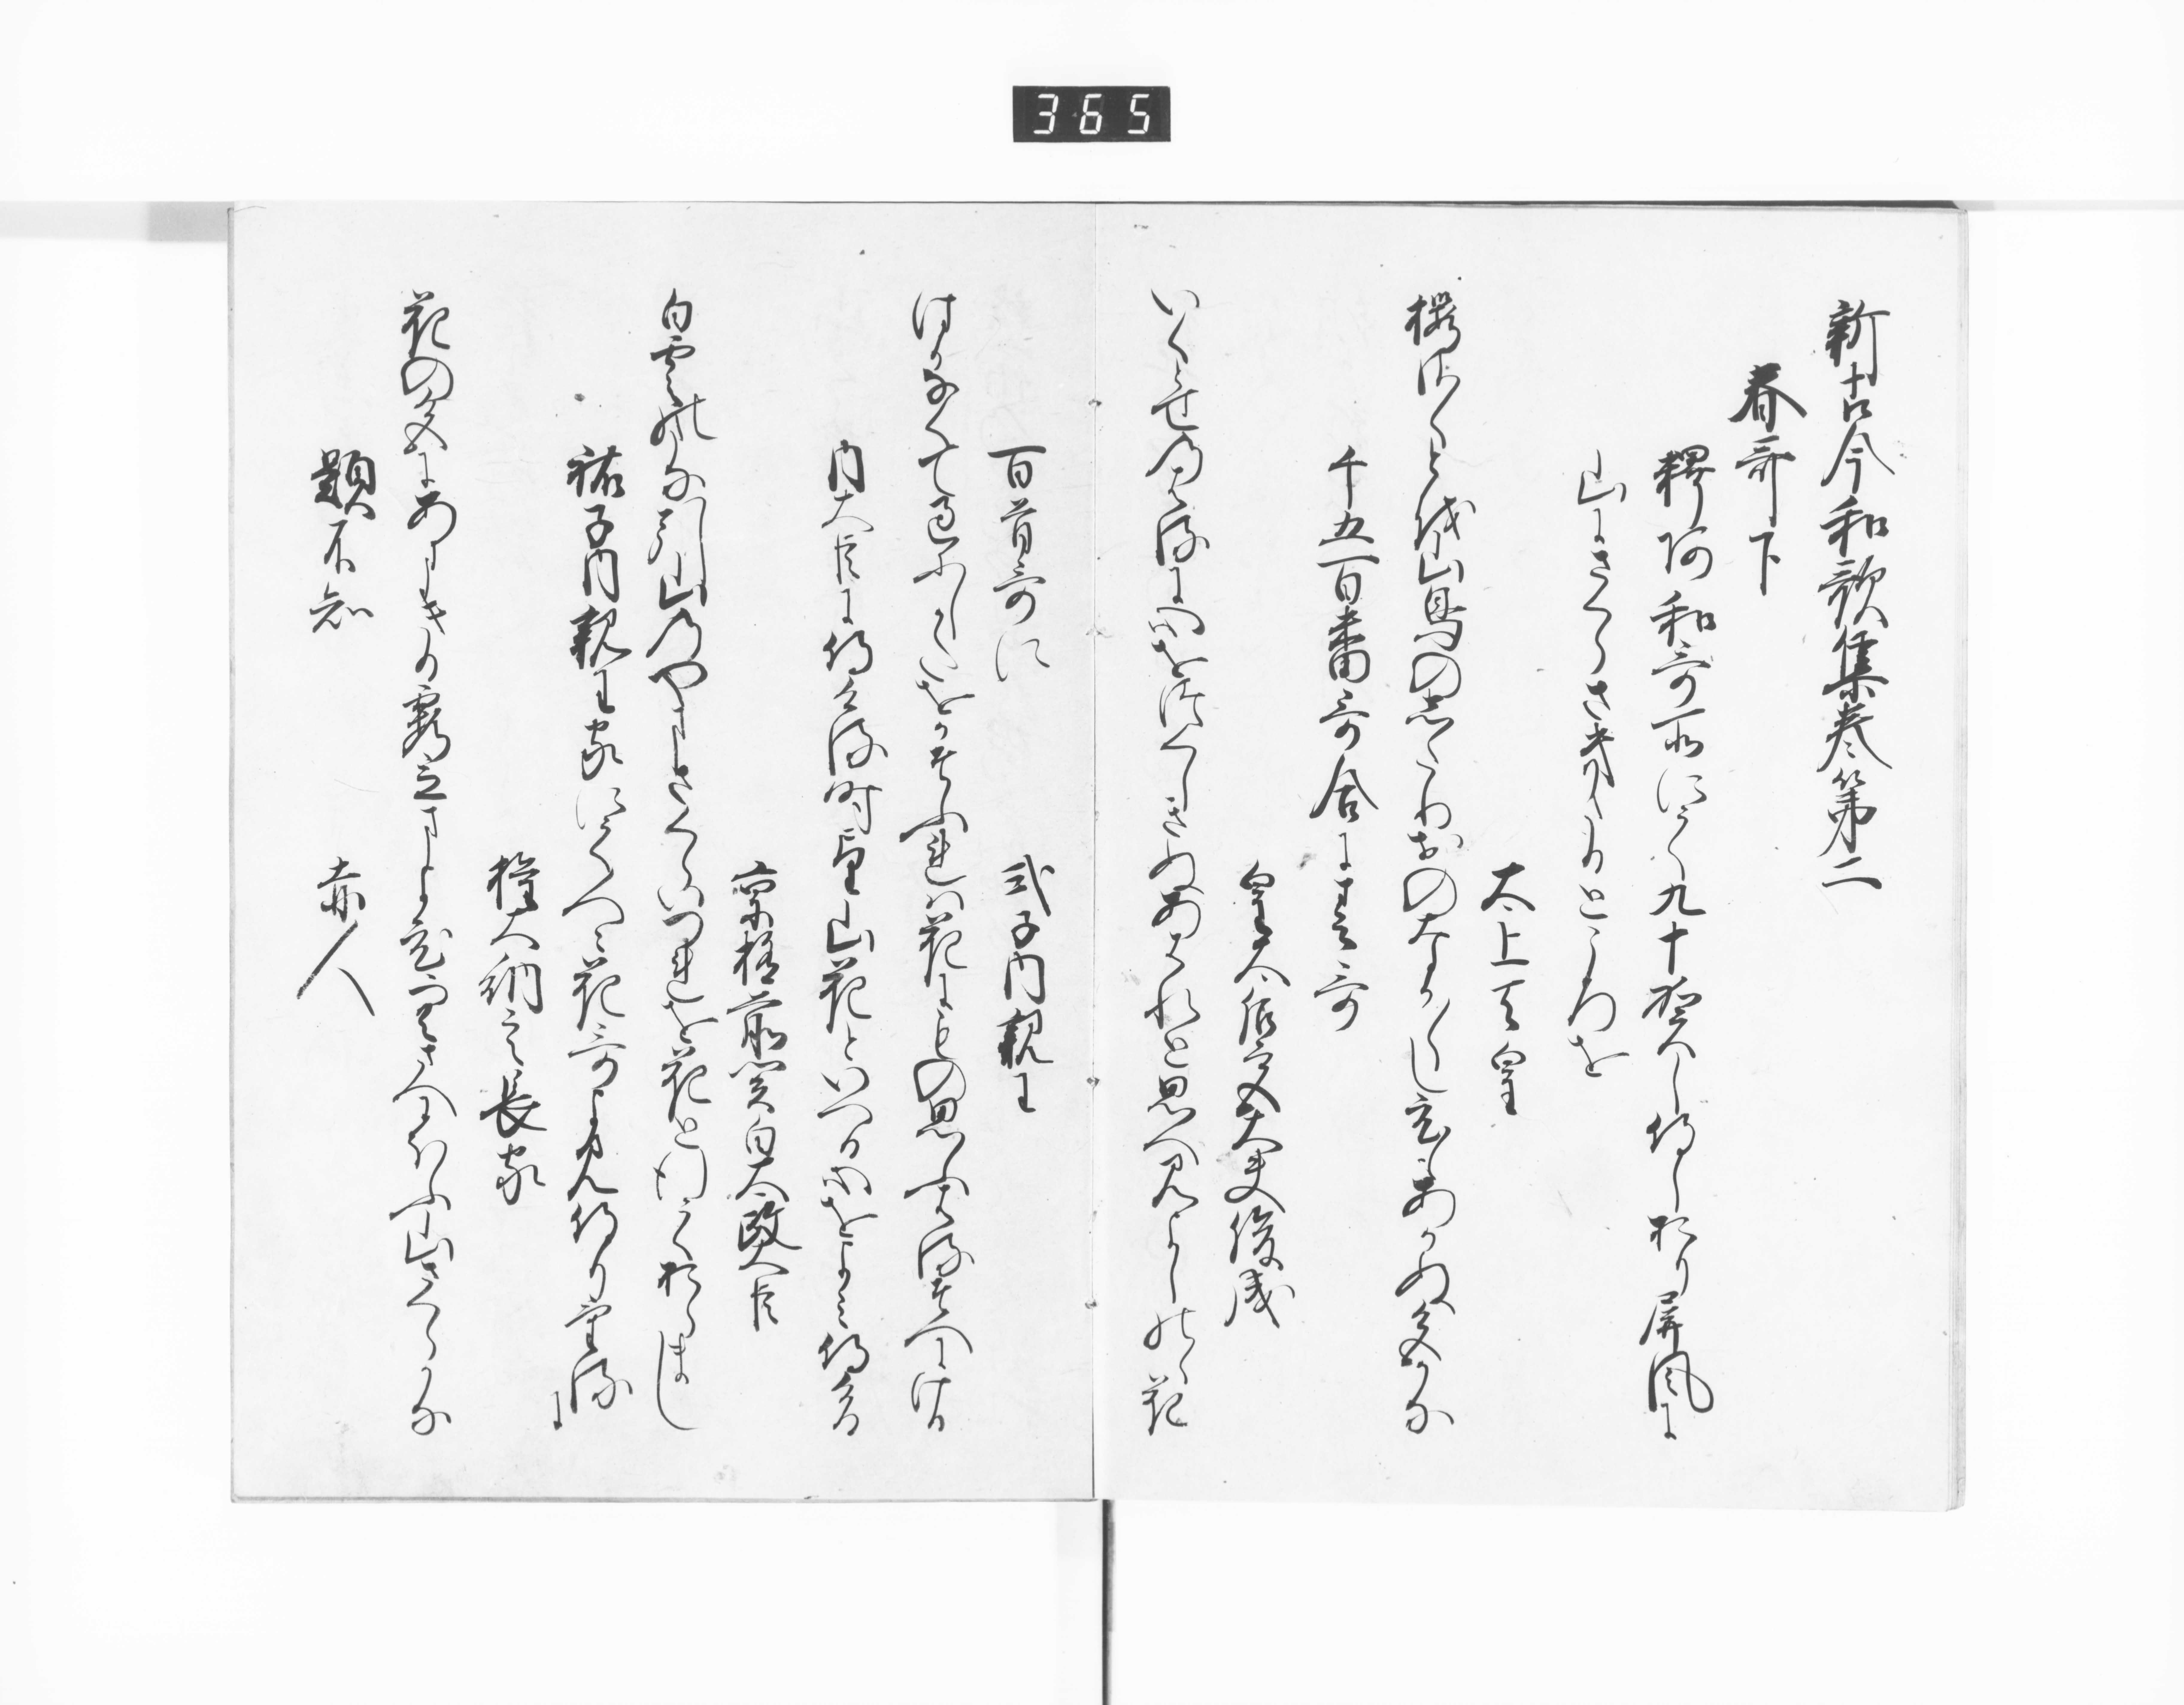 365
新古今和歌集巻第二
春哥下
釋阿和哥所にて九十賀し侍しおり屏風に
山にさくらさきたるところを
太上天皇
桜さくとを山鳥のしたりおのなか〱し日もあかぬ色かな
千五百番哥合に春哥
皇太后宮大夫俊成
いくとせの春に心をつくしきぬあはれと思へみよしのゝ花
百首哥に
式子内親王
はかなくて過にしかたをかそふれは花にもの思ふ春そへにける
内大臣に侍ける時望山花といへる心をよみ侍る
京極前関白太政大臣
白雲のたな引山のやまさくらいつれを花と行ておらまし
祐子内親王家にて人〻花哥よみ侍りけるに
権大納言長家
花の色にあまきる霞立まよひ空さへにほふ山さくらかな
題不知
赤人